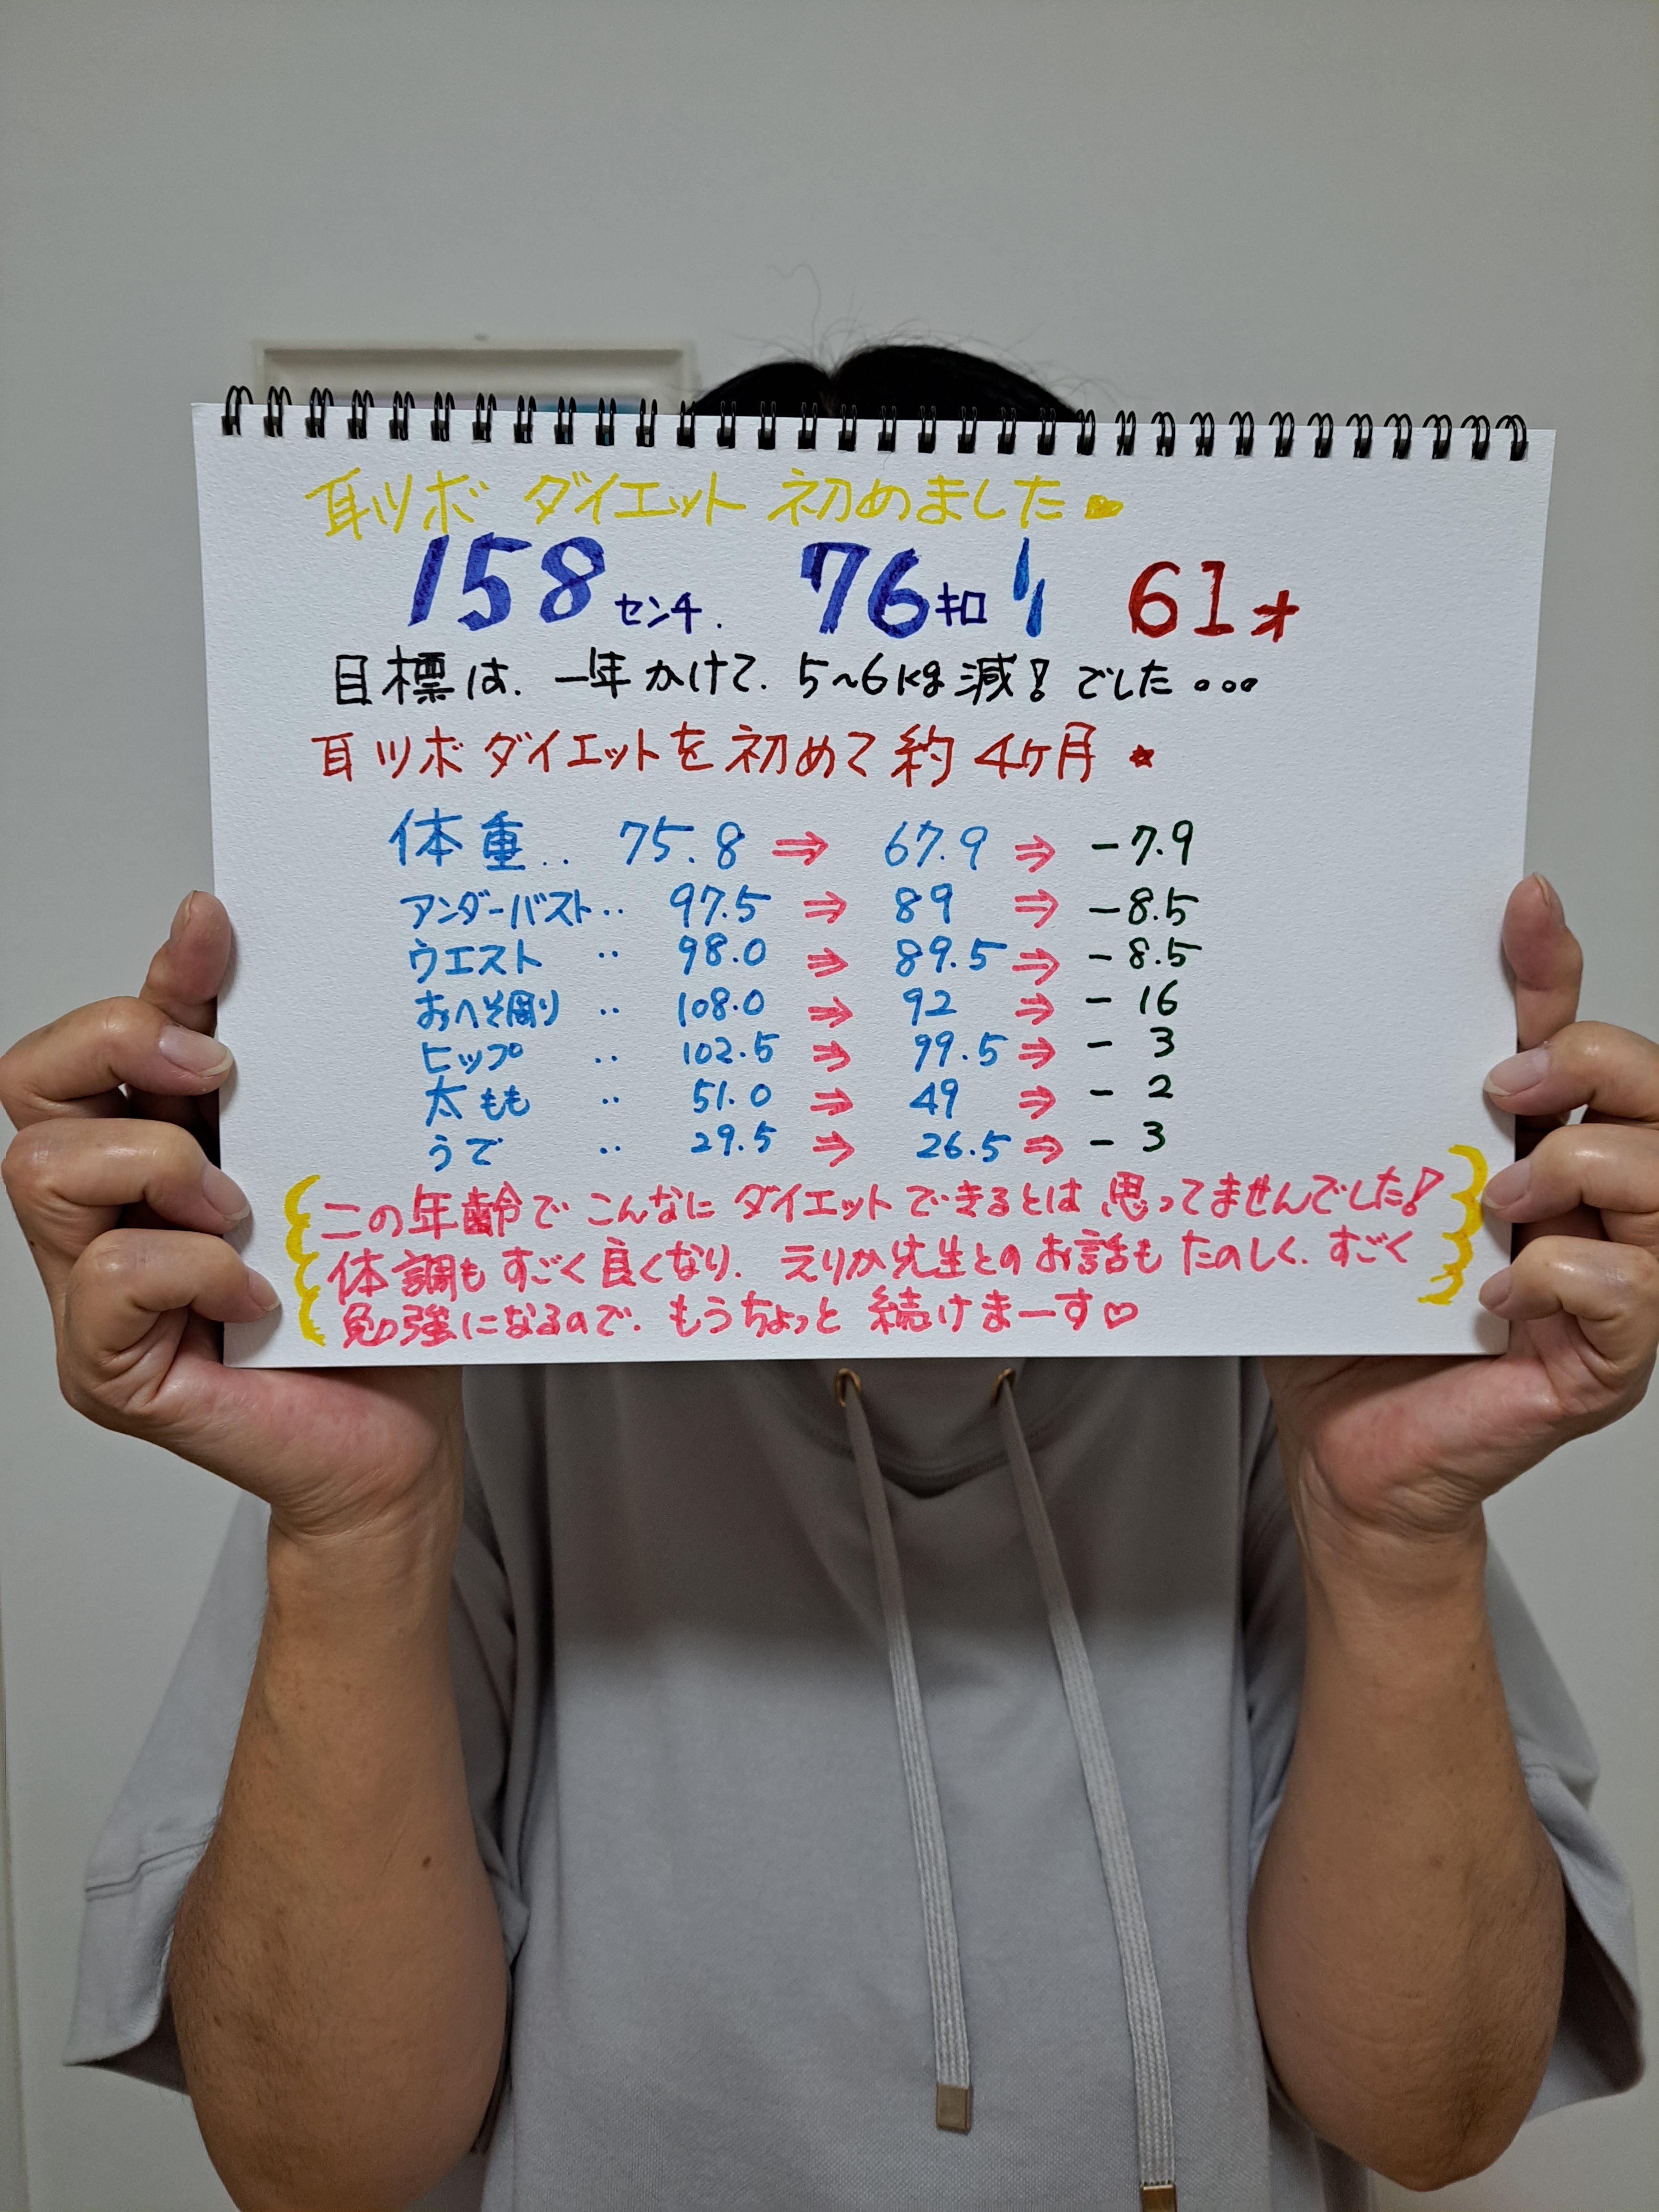 耳ツボ ダイエット 初めました
158センチ. 76キロ 61才
目標は、一年かけて、5~6kg減!でした...
耳ツボダイエットを初めて約4ヶ月 ★
体重‥ 75.8 ⇒ 67.9 ⇒ -7.9
アンダーバスト‥ 97.5 ⇒ 89 ⇒ -8.5
ウエスト ‥ 98.0 ⇒ 89.5 ⇒ -8.5
おへそ周り ‥ 108.0 ⇒ 92 ⇒ - 16
ヒップ ‥ 102.5 ⇒ 99.5 ⇒ - 3
太もも ‥ 51.0 ⇒ 49 ⇒ - 2
うで ‥ 29.5 ⇒ 26.5 ⇒ - 3
この年齢で こんなに ダイエット できるとは 思ってませんでした!
体調も すごく 良くなり、えりか先生との お話も たのしく、すごく
勉強になるので、もうちょっと 続けまーす♡